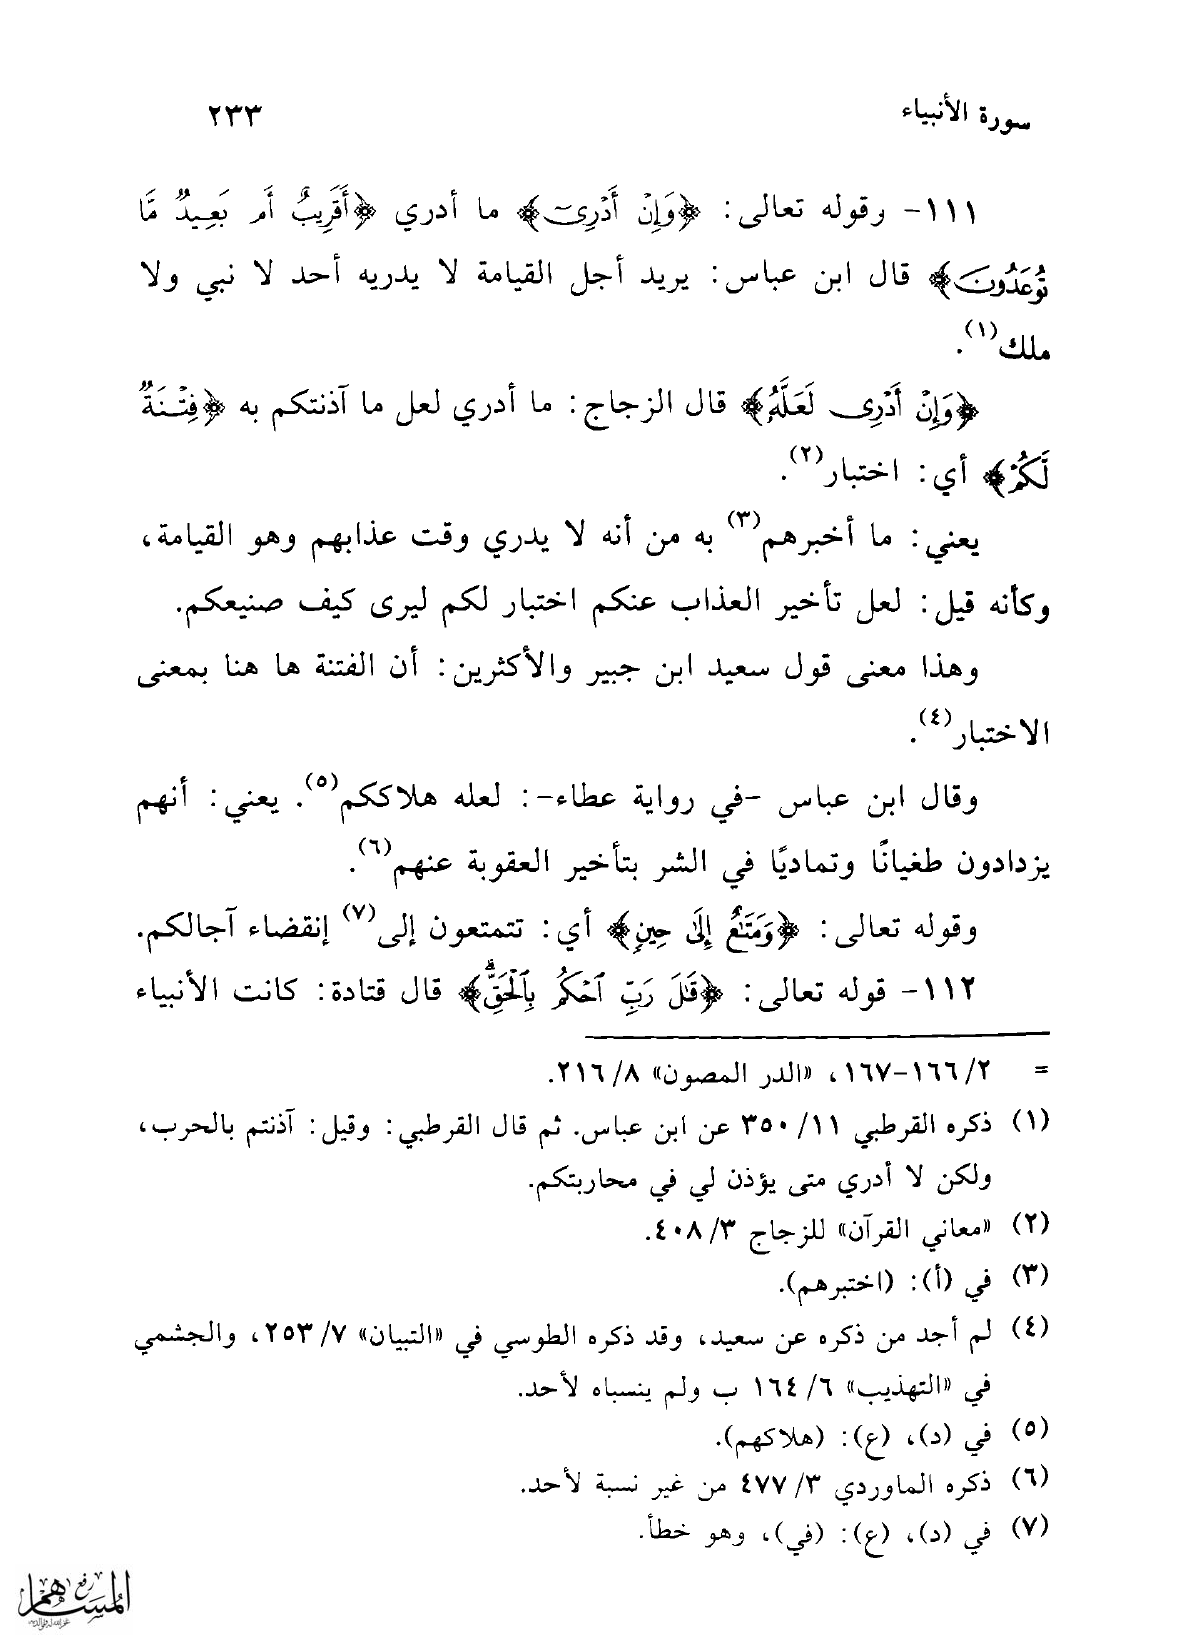 سورة الأنبياء ٢٣٣
١١١- وقوله تعالى: ﴿وَإِنْ أَدْرِىٓ﴾ ما أدري ﴿أَقَرِيبٌ أَم بَعِيدٌ مَّا
تُوعَدُونَ﴾ قال ابن عباس: يريد أجل القيامة لا يدريه أحد لا نبي ولا
ملك(١).
﴿وَإِنْ أَدْرِى لَعَلَّهُۥ﴾ قال الزجاج: ما أدري لعل ما آذنتكم به ﴿فِتْنَةٌ
لَّكُمْ﴾ أي: اختبار(٢).
يعني: ما أخبرهم(٣) به من أنه لا يدري وقت عذابهم وهو القيامة،
وكأنه قيل: لعل تأخير العذاب عنكم اختبار لكم ليرى كيف صنيعكم.
وهذا معنى قول سعيد ابن جبير والأكثرين: أن الفتنة ها هنا بمعنى
الاختبار(٤).
وقال ابن عباس -في رواية عطاء-: لعله هلاككم(٥). يعني: أنهم
يزدادون طغيانًا وتماديًا في الشر بتأخير العقوبة عنهم(٦).
وقوله تعالى: ﴿وَمَتَٰعٌ إِلَىٰ حِينٍ﴾ أي: تتمتعون إلى(٧) إنقضاء آجالكم.
١١٢- قوله تعالى: ﴿قَٰلَ رَبِّ ٱحْكُم بِٱلْحَقِّۗ﴾ قال قتادة: كانت الأنبياء
= ٢/ ١٦٦-١٦٧، «الدر المصون» ٨/ ٢١٦.
(١) ذكره القرطبي ١١/ ٣٥٠ عن ابن عباس. ثم قال القرطبي: وقيل: آذنتم بالحرب،
ولكن لا أدري متى يؤذن لي في محاربتكم.
(٢) «معاني القرآن» للزجاج ٣/ ٤٠٨.
(٣) في (أ): (اختبرهم).
(٤) لم أجد من ذكره عن سعيد، وقد ذكره الطوسي في «التبيان» ٧/ ٢٥٣، والجشمي
في «التهذيب» ٦/ ١٦٤ ب ولم ينسباه لأحد.
(٥) في (د)، (ع): (هلاكهم).
(٦) ذكره الماوردي ٣/ ٤٧٧ من غير نسبة لأحد.
(٧) في (د)، (ع): (في)، وهو خطأ.